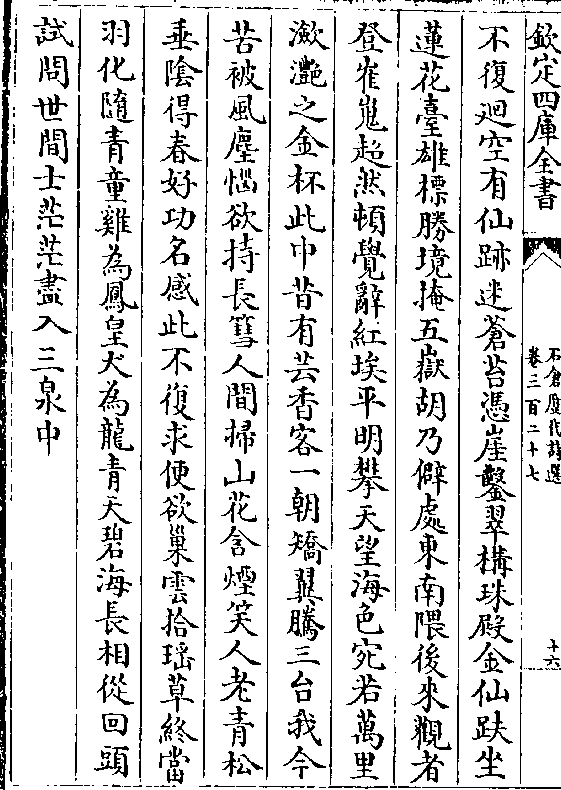 欽定四庫全書
石倉歷代詩選
卷三百二十七
十六
不復迴空有仙跡迷蒼苔憑崖鑿翠構珠殿金仙趺坐
蓮花臺雄標勝境掩五嶽胡乃僻處東南隈後來觀者
登崔嵬超然頓覺辭紅埃平明攀天望海色宛若萬里
瀲灔之金杯此中昔有芸香客一朝矯翼騰三台我今
苦被風塵惱欲持長篲人間掃山花含煙笑人老青松
垂陰得春好功名感此不復求便欲巢雲拾瑶草終當
羽化隨青童雞為鳳皇犬為龍青天碧海長相從回頭
試問世間士茫茫盡入三泉中